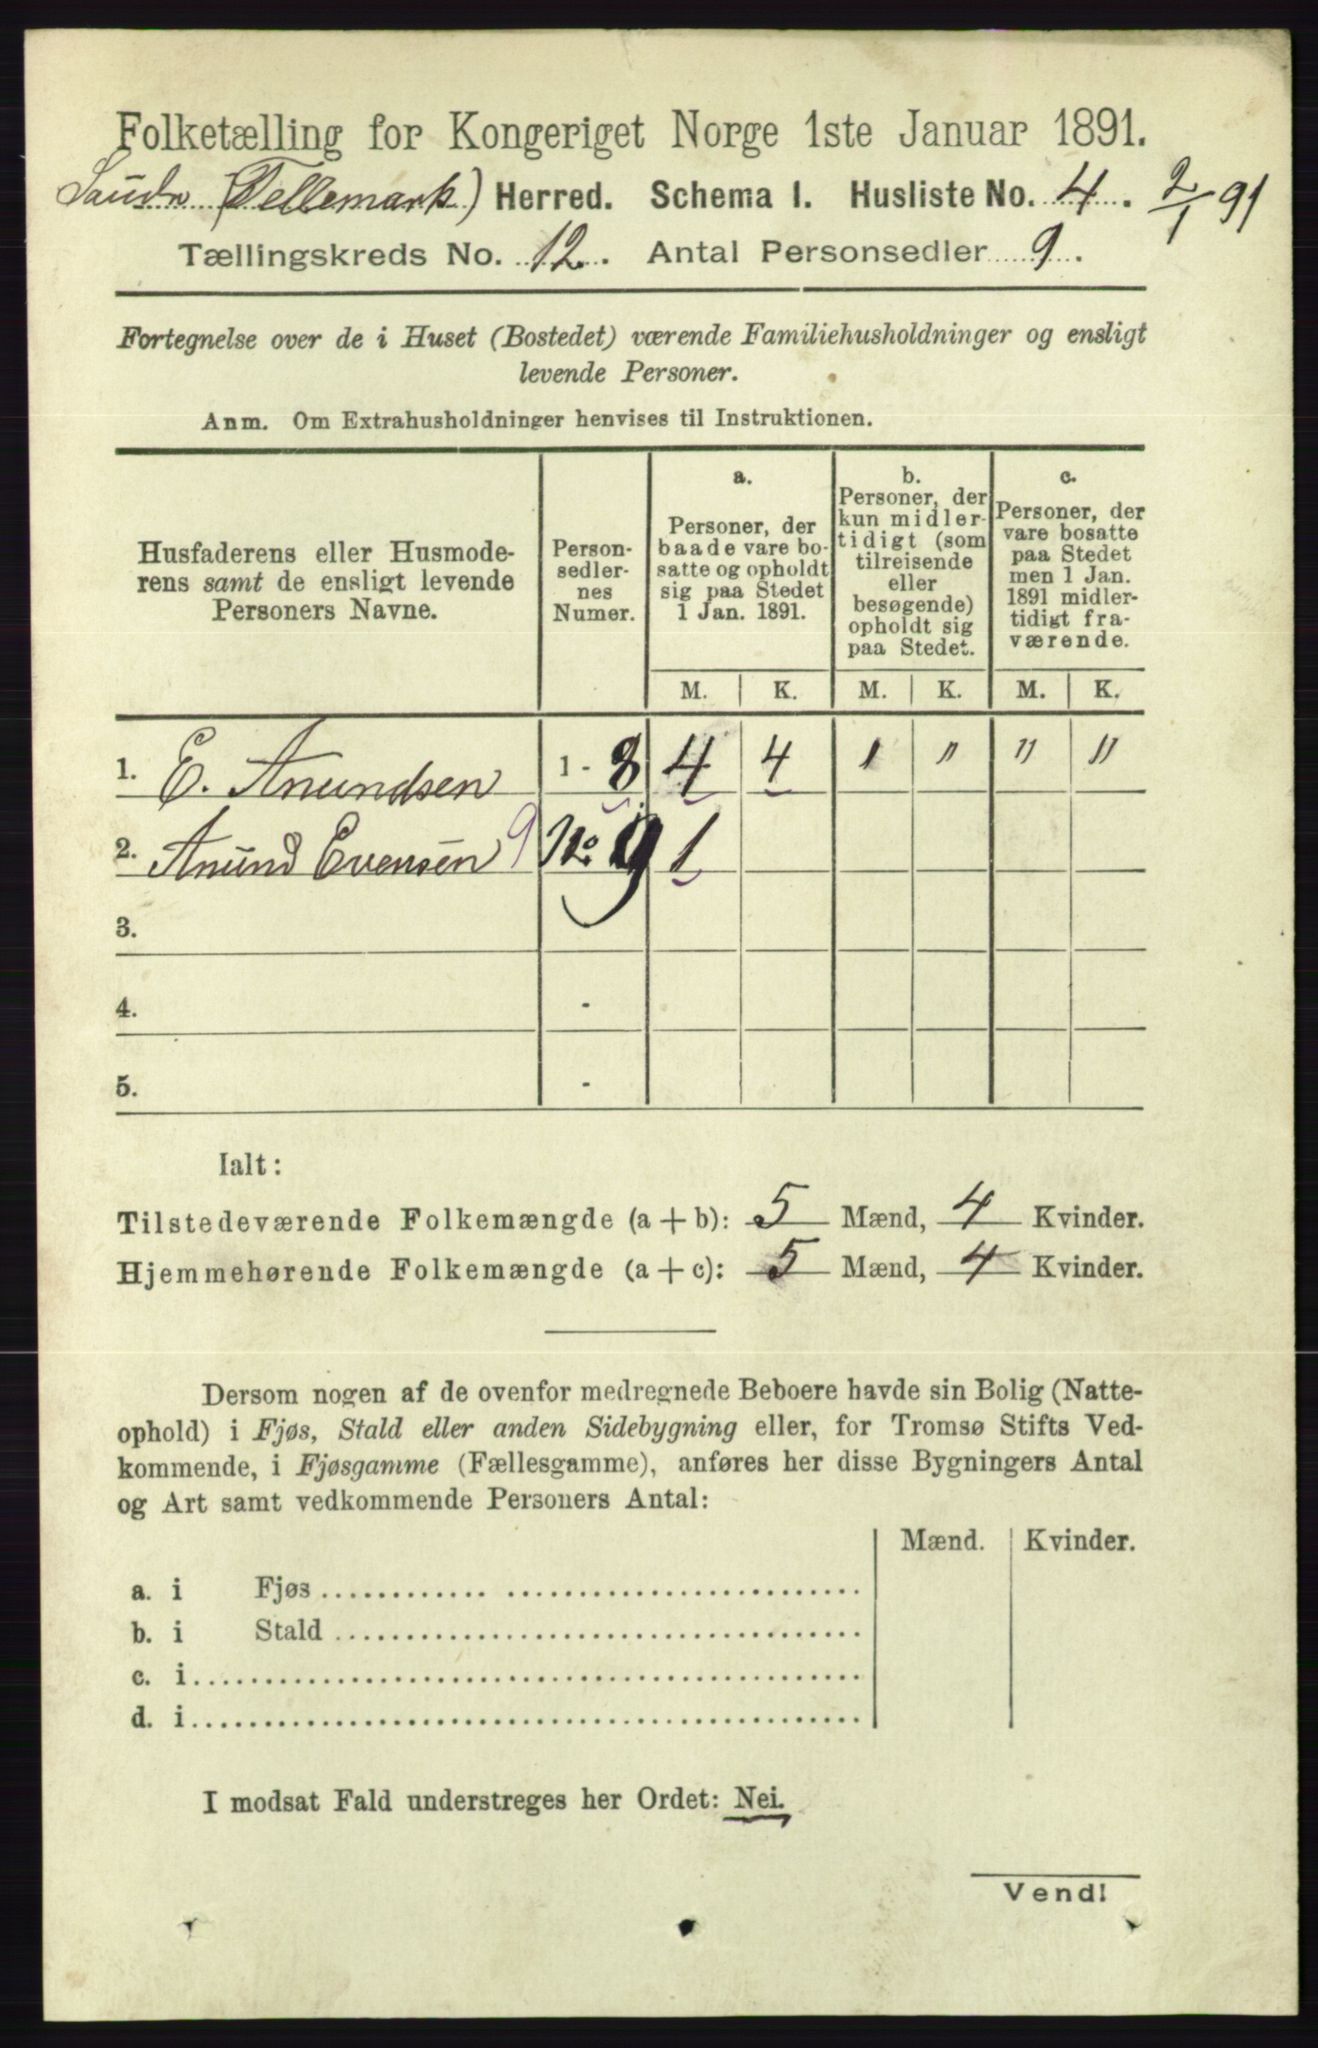 Folketælling for Kongeriget Norge 1ste Januar 1891.
(Tellemark) Herred. Schema I. Husliste No. 4. 2/1 91
Tællingskreds No. 12. Antal Personsedler 9.
Fortegnelse over de i Huset (Bostedet) værende Familiehusholdninger og ensligt
levende Personer.
Anm. Om Extrahusholdninger henvises til Instruktionen.
Husfaderens eller Husmode-
rens samt de ensligt levende
Personers Navne.
Person-
sedler-
nes
Numer.
a.
Personer, der
baade vare bo-
satte og opholdt
sig paa Stedet
1 Jan. 1891.
b.
Personer, der
kun midler-
tidigt (som
tilreisende
eller
besøgende)
opholdt sig
paa Stedet.
c.
Personer, der
vare bosatte
paa Stedet
men 1 Jan.
1891 midler-
tidigt fra-
værende.
M. K. M. K. M. K.
1. E. Anundsen 1 - 8 4 4 1 " " "
2. Anund Evensen 9 No 9 1
3.
4. -
5. -
Ialt:
Tilstedeværende Folkemængde (a + b): 5 Mænd, 4 Kvinder.
Hjemmehørende Folkemængde (a + c): 5 Mænd, 4 Kvinder.
Dersom nogen af de ovenfor medregnede Beboere havde sin Bolig (Natte-
ophold) i Fjøs, Stald eller anden Sidebygning eller, for Tromsø Stifts Ved-
kommende, i Fjøsgamme (Fællesgamme), anføres her disse Bygningers Antal
og Art samt vedkommende Personers Antal:
Mænd. Kvinder.
a. i Fjøs
b. i Stald
c. i
d. i
I modsat Fald understreges her Ordet: Nei.
Vend!